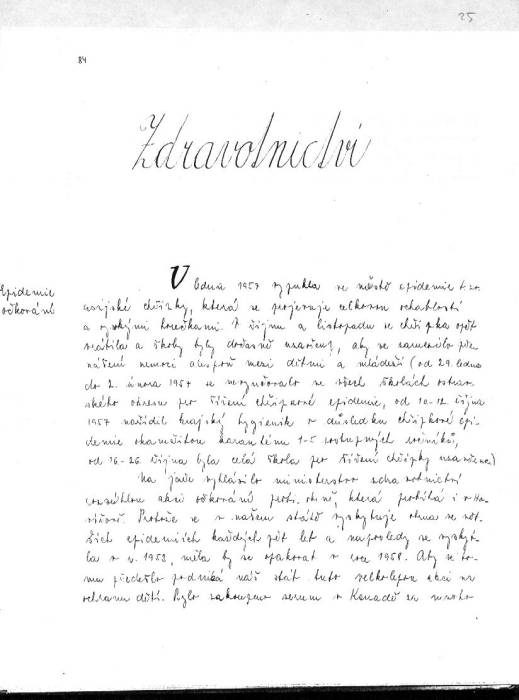 25
84
Zdravotnictví
Epidemie
očkování
V lednu 1957 vypukla ve městě epidemie t.zv.
asijské chřipky, která se projevuje celkovou ochablostí
a vysokými horečkami. V říjnu a listopadu se chřipka opět
vrátila a školy byly dočasně uzavřeny, aby se zamezilo pře
nášení nemoci alespoň mezi dětmi a mládeží (od 29. ledna
do 2. února 1957 se nevyučovalo ve všech školách ostrav-
ského okresu pro šíření chřipkové epidemie, od 10.-12. října
1957 nařídil krajský hygienik v důsledku chřipkové epi-
demie okamžitou karanténu 1-5 postupných ročníků,
od 16-26. října byla celá škola pro šíření chřipky uzavřena)
Na jaře vyhlásilo ministerstvo zdravotnictví
rozsáhlou akci očkování proti obrně, která probíhá i v Ha-
vířově. Protože se v našem státě vyskytuje obrna ve vět-
ších epidemiích každých pět let a naposledy se vyskyt-
la v r. 1953, měla by se opakovat v roce 1958. Aby se to-
mu předešlo podniká náš stát tuto velkolepou akci na
ochranu dětí. Bylo zakoupeno serum v Kanadě za mnoho